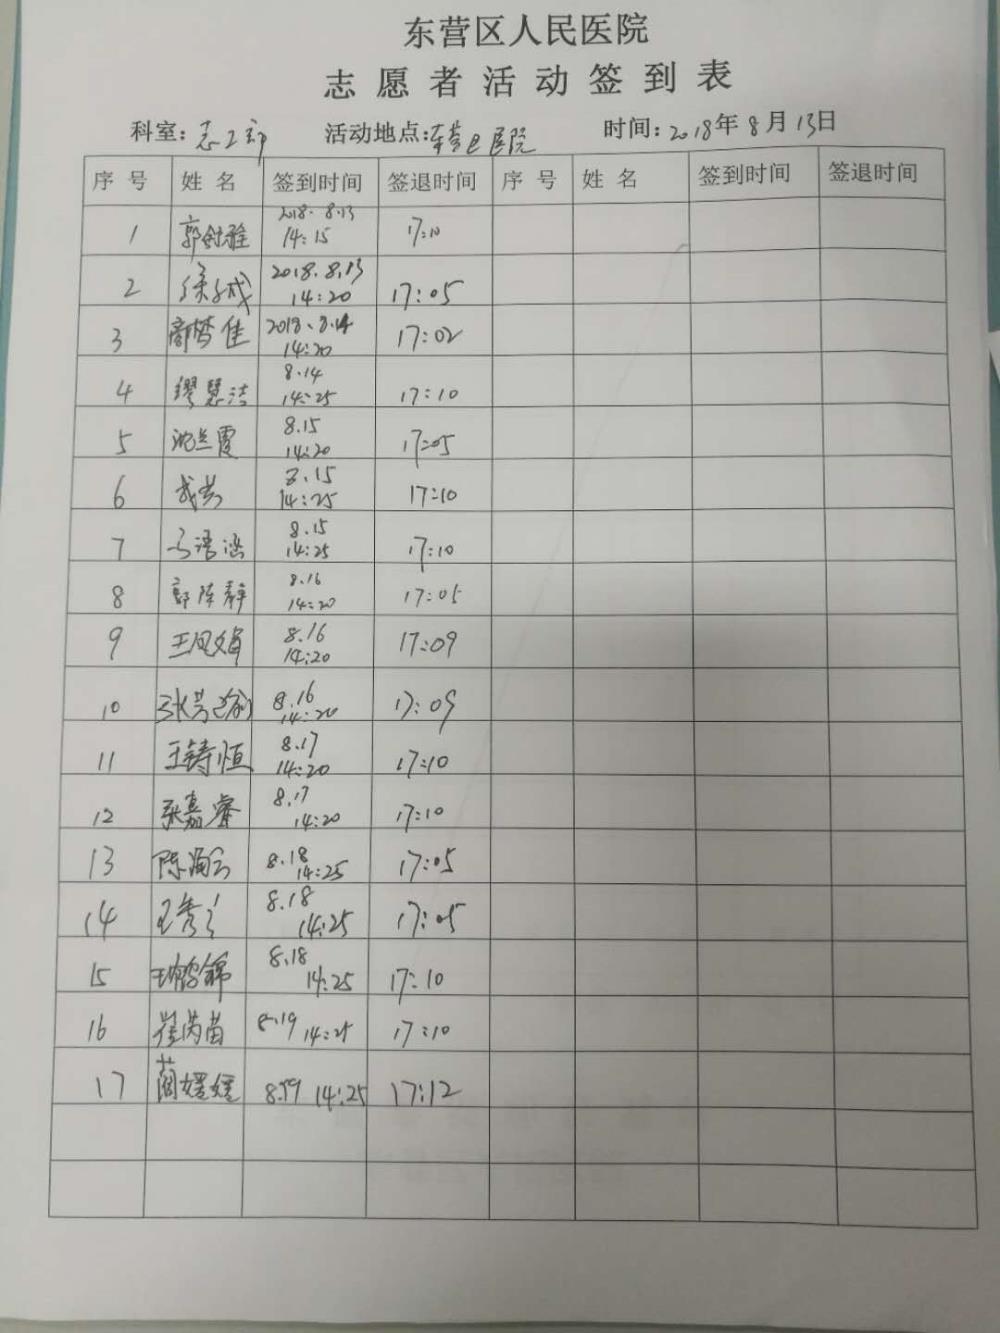 东营区人民医院
志愿者活动签到表
科室: 志工部 活动地点: 东营区医院 时间: 2018年8月13日
序号 姓名 签到时间 签退时间 序号 姓名 签到时间 签退时间
1 2018.8.13 14:15 17:10
2 2018.8.13 14:20 17:05
3 2018.8.14 14:20 17:02
4 缪慧洁 8.14 14:25 17:10
5 沈兰霞 8.15 14:20 17:05
6 8.15 14:25 17:10
7 马语涵 8.15 14:25 17:10
8 郭陈静 8.16 14:20 17:05
9 王凤娟 8.16 14:20 17:09
10 8.16 14:20 17:09
11 王铸恒 8.17 14:20 17:10
12 张嘉睿 8.17 14:20 17:10
13 8.18 14:25 17:05
14 8.18 14:25 17:05
15 8.18 14:25 17:10
16 崔芮苗 8.19 14:25 17:10
17 蔺媛媛 8.19 14:25 17:12